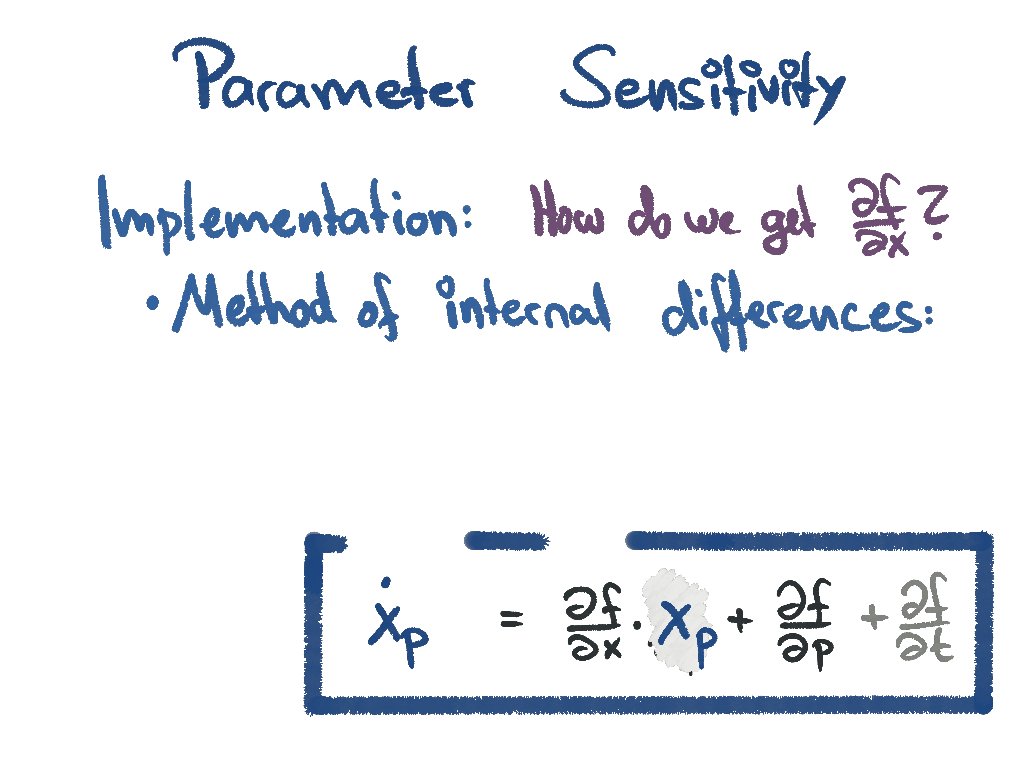 Parameter Sensitivity
Implementation: How do we get ∂f/∂x?
• Method of internal differences:
ẋₚ = ∂f/∂x · xₚ + ∂f/∂p + ∂f/∂t